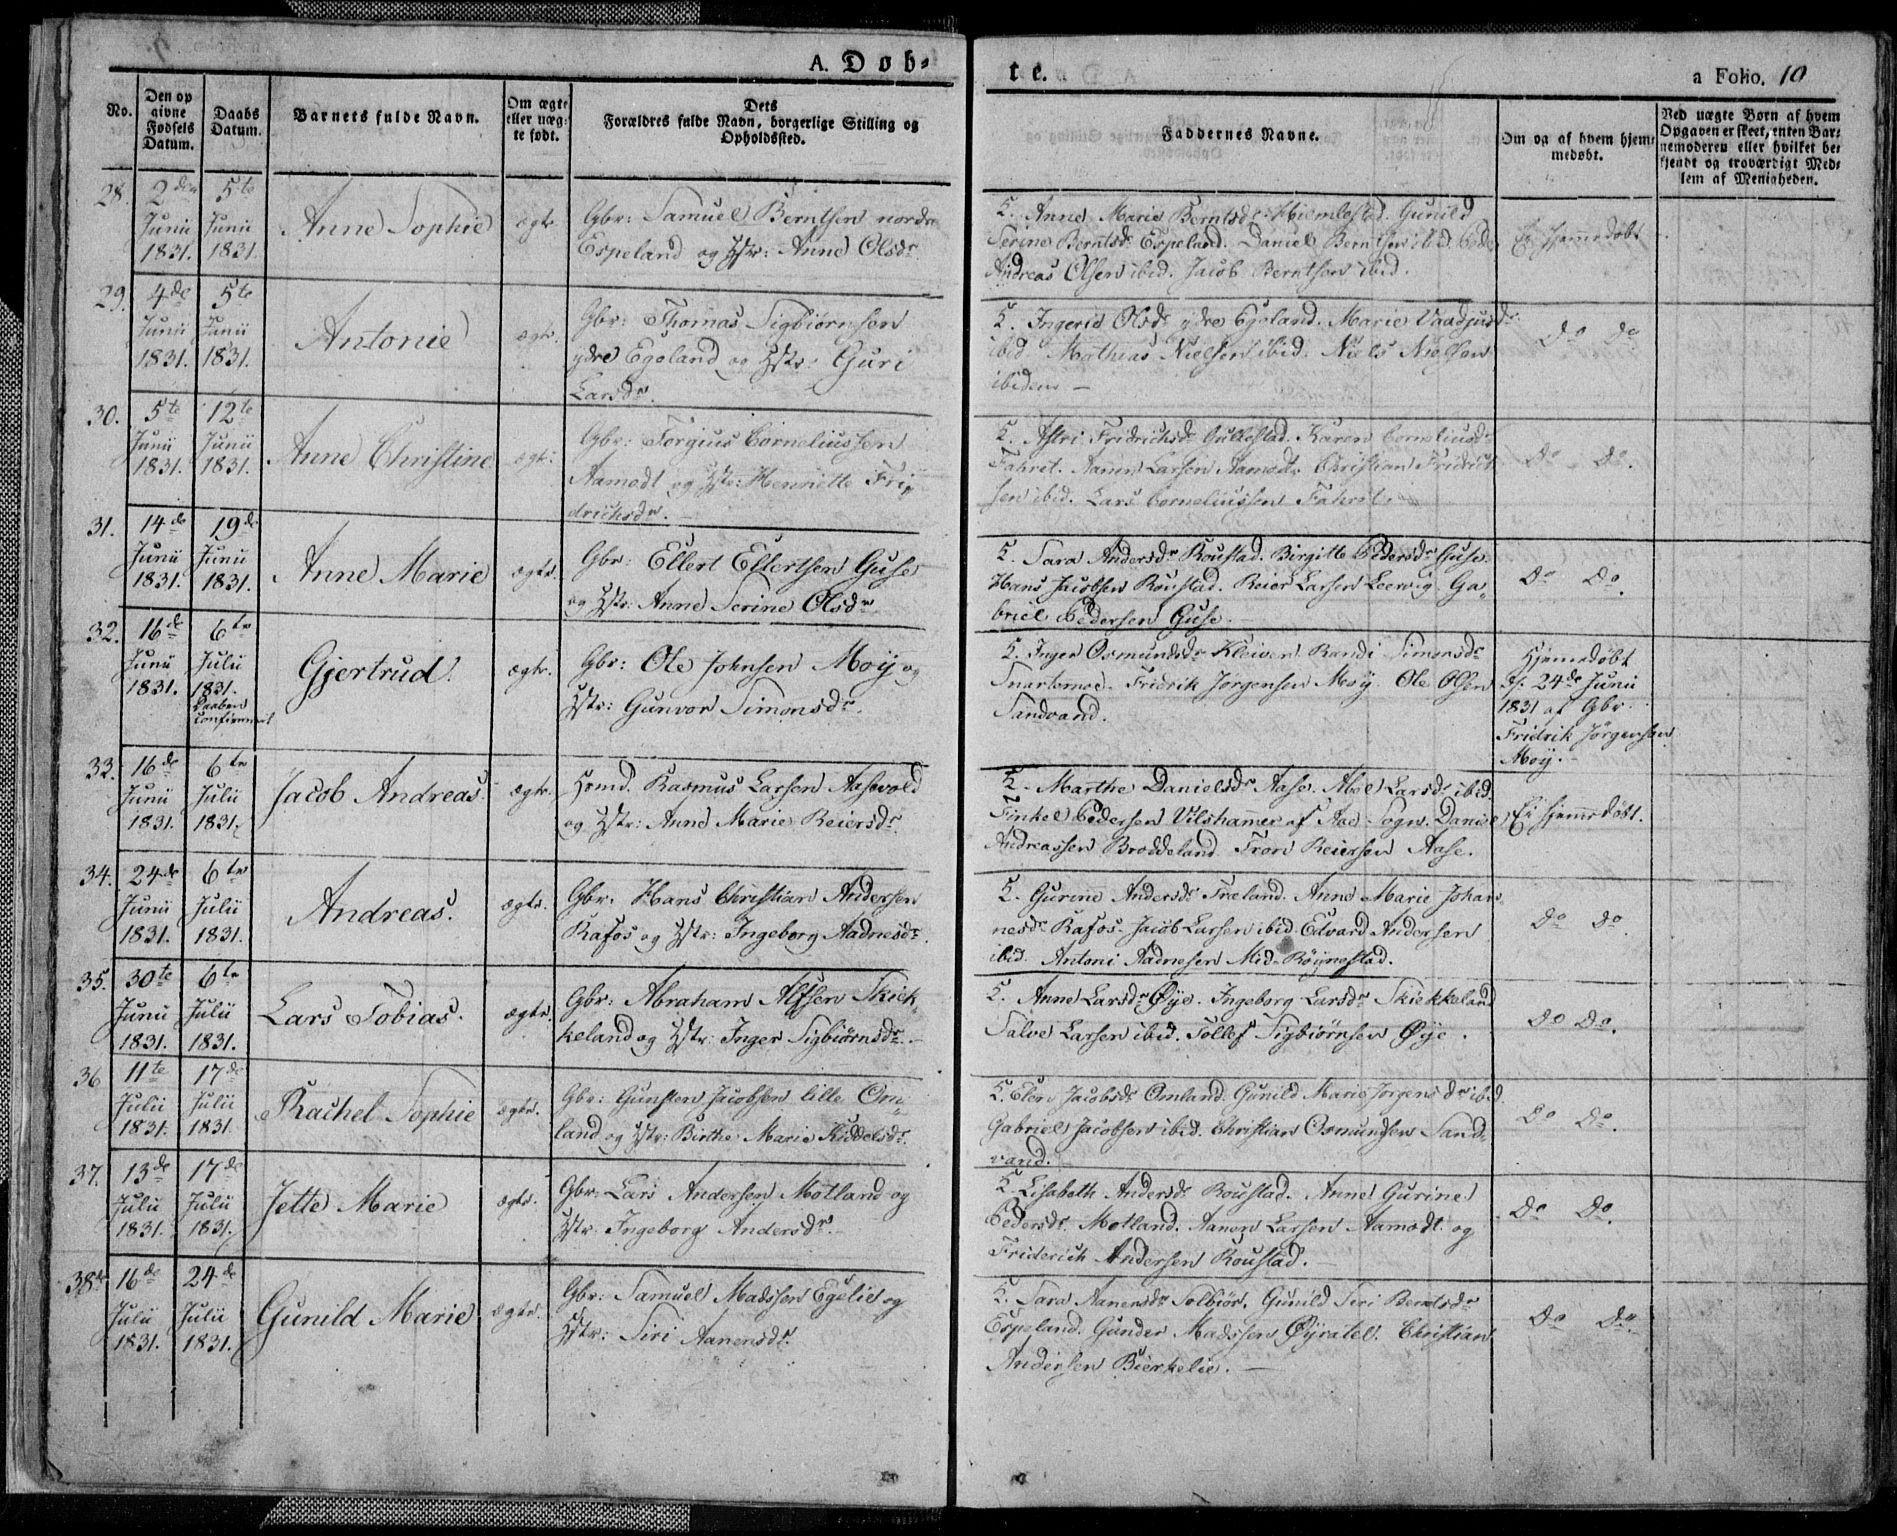 A. Døb-
te.
a Folio. 10
No.
Den op
givne
Fødsels
Datum.
Daabs
Datum.
Barnets fulde Navn.
Om ægte
eller uæg-
te født.
Dets
Forældres fulde Navn, borgerlige Stilling og
Opholdssted.
Faddernes Navne.
Om og af hvem hjem-
medøbt.
Ved uægte Børn af hvem
Opgaven er skeet, enten Bar-
nemoderen eller hvilket be-
kjendt og troværdigt Med-
lem af Menigheden.
28. 2den Junii 1831. 5te Junii 1831. Anne Sophie ægte
Gbr: Samuel Berntsen nordre
Espeland og Hstr: Anne Olsdr.
Anne Marie Berntsdr. Hiemlestad. Gunild
Serine Berntsdr. Espeland. Daniel Berntsen ibid.
Andreas Olsen ibid. Jacob Berntsen ibid.
Ei hjemmedøbt
29. 4de Junii 1831. 5te Junii 1831. Antonie ægte.
Gbr: Thomas Sigbiørnsen
ydre Egeland og Hstr: Guri
Larsdr.
Ingerid Olsdr. ydre Egeland. Marie
ibid Mathias Nielsen ibid. Niels Nielsen
ibidem —
Do Do
30. 5te Junii 1831. 12te Junii 1831. Anne Christine ægte
Gbr: Torgius Corneliussen
Aamodt og Hstr: Henriette Fri-
drichsdr.
Astri Fridrichsdr. Gullestad. Karen Corneliusdr.
Fahret. Aanen Larsen Aamodt. Christian Fridrich
sen ibid. Lars Corneliussen Fahret.
Do Do.
31. 14de Junii 1831. 19de Junii 1831. Anne Marie ægte.
Gbr: Ellert Ellertsen Guse
og Hstr: Anne Serine Olsdr.
Sara Andersdr. Roustad. Birgitte Pedersdr. Guse.
Hans Jacobsen Roustad. Reier Larsen Leervig. Ga-
briel Pedersen Guse.
Do Do.
32. 16de Junii 1831. 6te Julii 1831. Daaben Confirmert Gjertrud. ægte.
Gbr: Ole Johnsen Moÿ og
Hstr: Gunvor Simonsdr.
Inger Osmundsdr. Kleiven. Randi Simonsdr.
Snartemoe. Fridrik Jørgensen Moÿ. Ole Olsen
Sandvand.
Hjemedøbt
24de Junii
1831 af Gbr.
Fridrik Jörgensen
Moÿ.
33. 16de Junii 1831. 6te Julii 1831. Jacob Andreas ægte.
Hsmd. Rasmus Larsen Aasevold
og Hstr: Anne Marie Reiersdr.
Marthe Danielsdr. Aase. Abel Larsdr. ibid.
Tinkel Pedersen Vilshammer af Aae Sogn. Daniel
Andreassen Broddeland. Tron Reiersen Aase.
Ei hjemmedøbt.
34. 24de Junii 1831. 6te Julii 1831. Andreas. ægte.
Gbr: Hans Christian Andersen
Rafos og Hstr: Ingeborg Aadnesdr.
Gurine Andersdr. Træland. Anne Marie Johan
nesdr. Rafos. Jacob Larsen ibid. Edvard Andersen
ibid. Antoni Aadnesen Mid-Röÿnestad.
Do Do.
35. 30te Junii 1831. 6te Julii 1831. Lars Tobias. ægte.
Gbr: Abraham Alfsen Skiek-
keland og Hstr: Inger Sigbiørnsdr. —
Anne Larsdr. Øÿe. Ingeborg Larsdr. Skiekkeland
Salve Larsen ibid. Tollef Sigbiørnsen Øÿe.
Do Do.
36 11te Julii 1831. 17de Julii 1831. Rachel Sophie ægte.
Gbr: Gunsten Jacobsen lille Om-
land og Hstr: Birthe Marie Kiddelsdr.
Elen Jacobsdr. Omland. Gunild Marie Jørgensdr. ibid.
Gabriel Jacobsen ibid. Christian Osmundsen Sand-
vand.
Do Do.
37. 13de Julii 1831. 17de Julii 1831. Jette Marie ægte.
Gbr: Lars Andersen Motland og
Hstr: Ingeborg Andersdr.
Lisabeth Andersdr. Roustad. Anne Gurine
Pedersdr. Motland. Aanen Larsen Aamodt og
Friderich Andersen Roustad.
Do Do.
38de 16de Julii 1831. 24de Julii 1831. Gunild Marie ægte.
Gbr: Samuel Madssen Egelie og
Hstr: Siri Aanensdr.
Sara Aanensdr. Solbiør. Gunild Siri Berntsdr.
Espeland. Gunder Madssen Øÿratel. Christian
Andersen Bierkelie. —
Do Do.